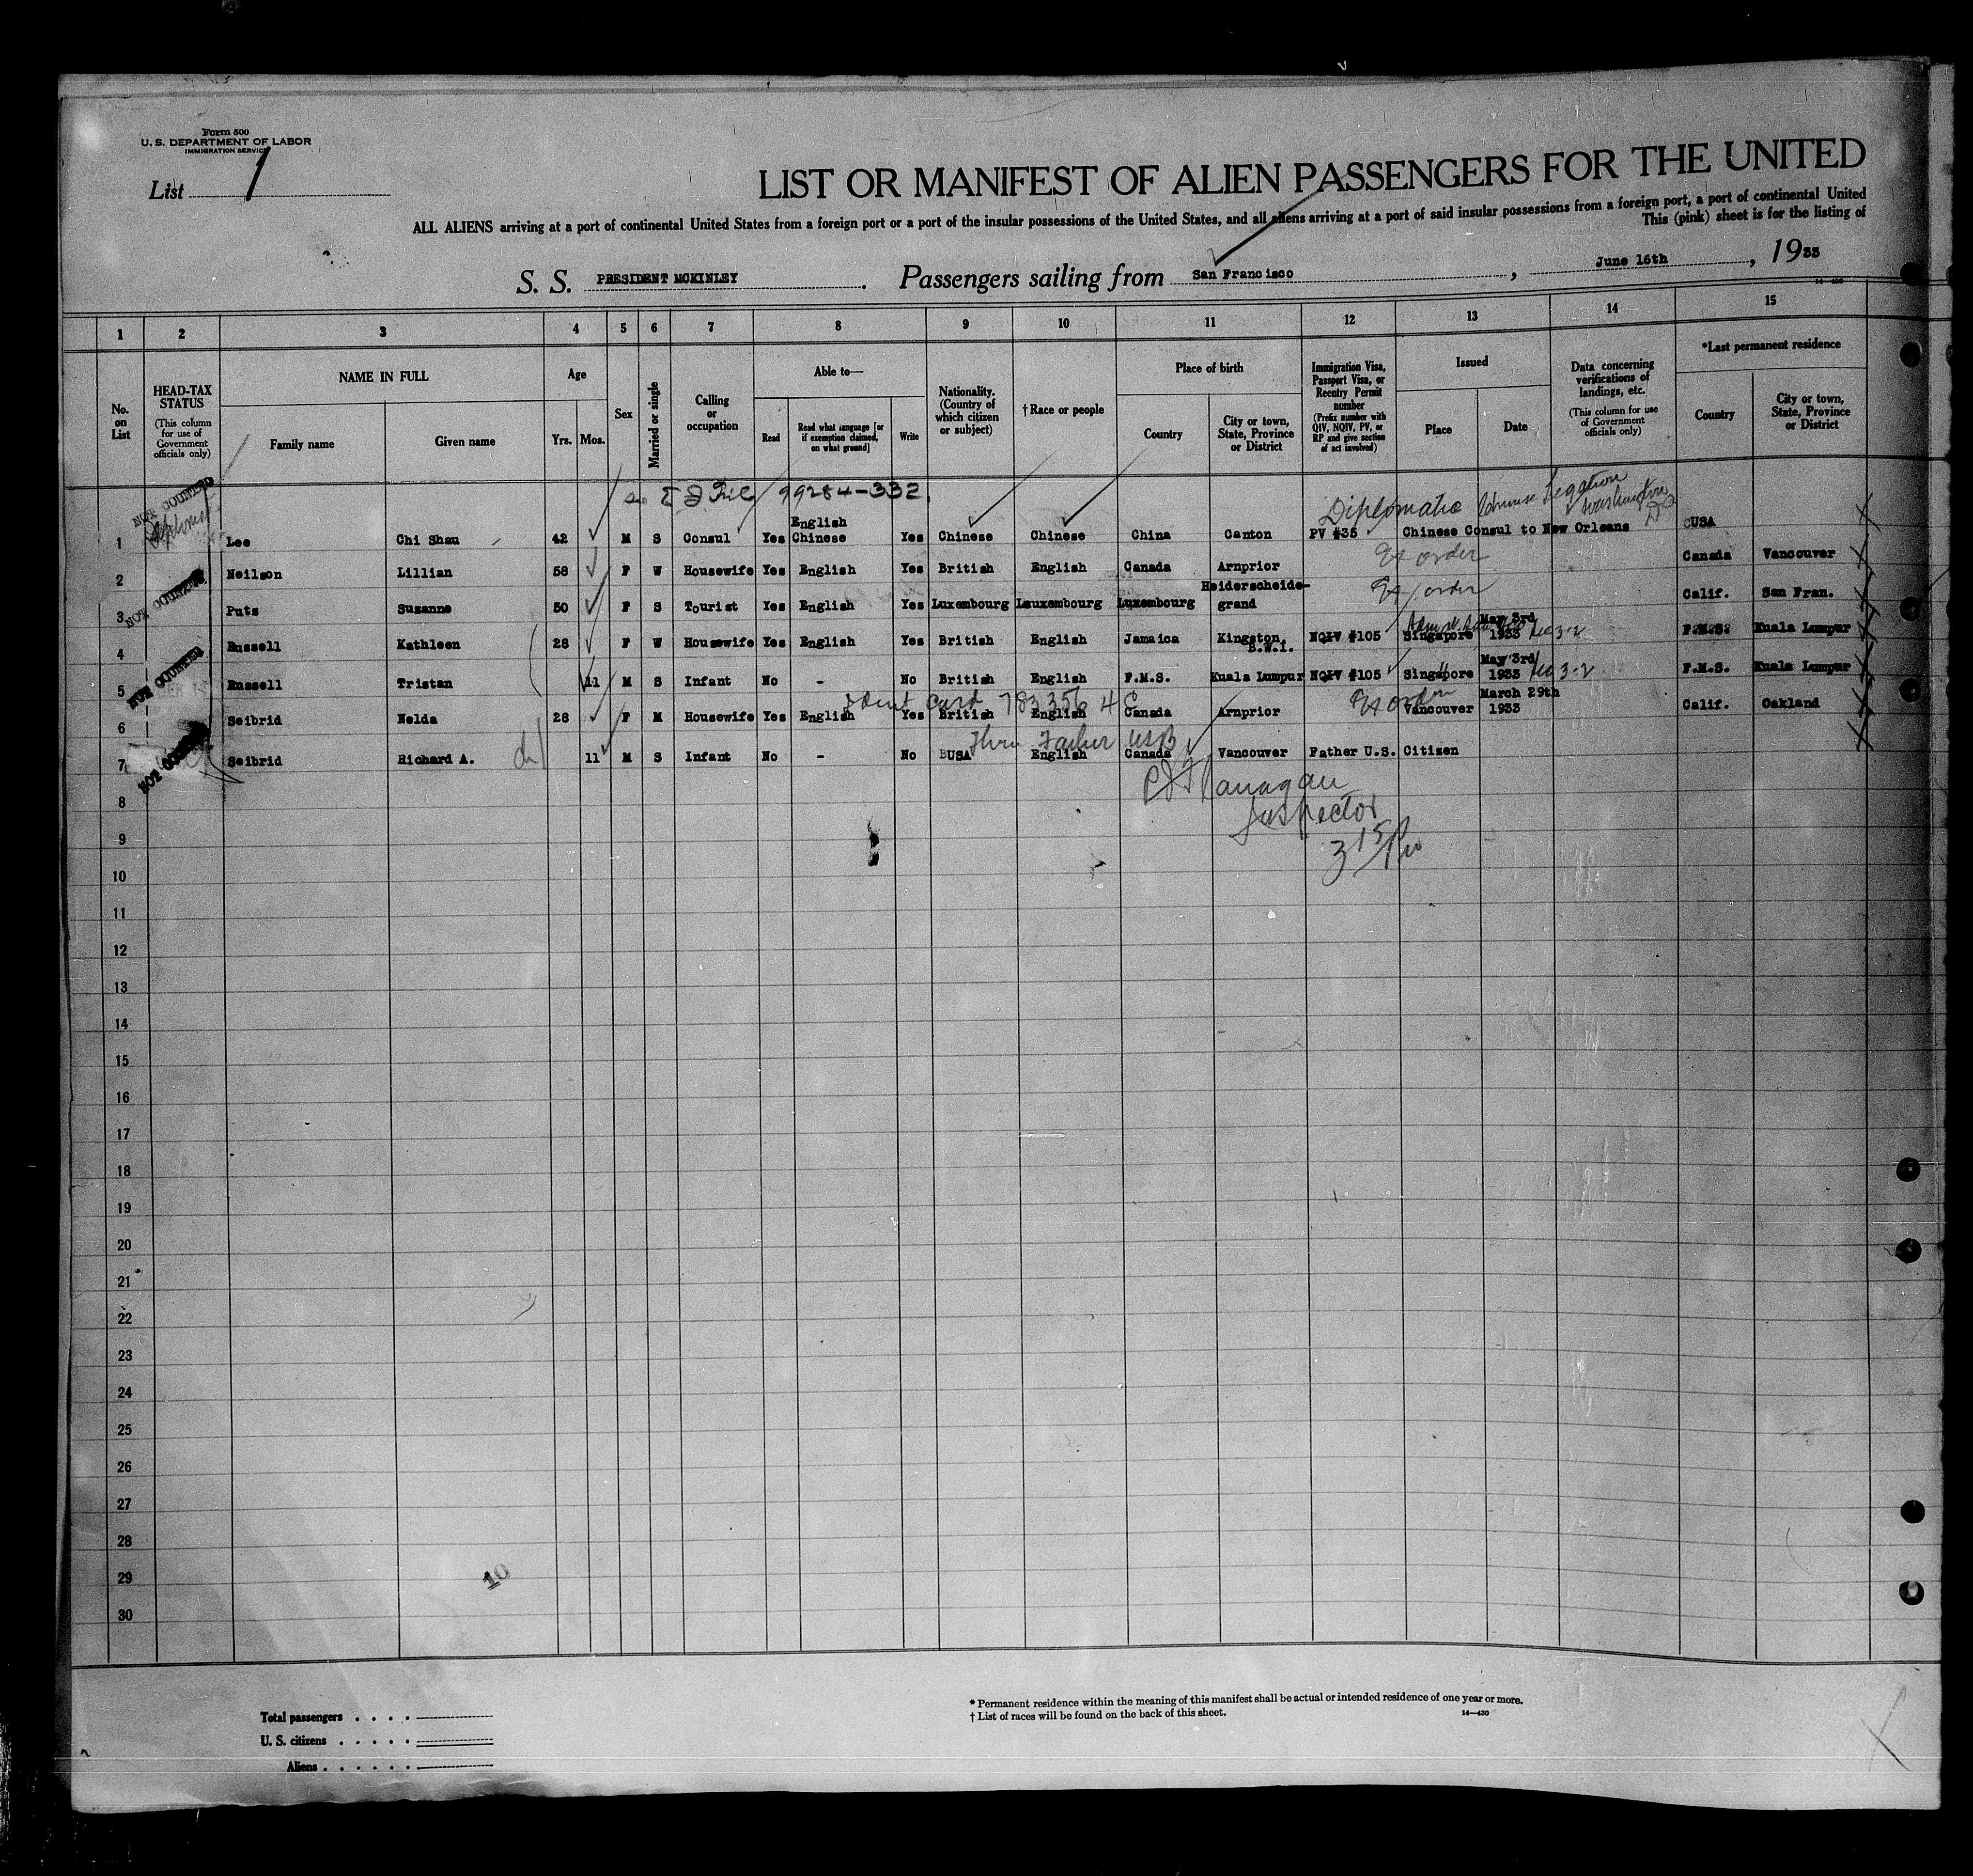 Form 500
U. S. DEPARTMENT OF LABOR
IMMIGRATION SERVICE
List 1
LIST OR MANIFEST OF ALIEN PASSENGERS FOR THE UNITED
ALL ALIENS arriving at a port of continental United States from a foreign port or a port of the insular possessions of the United States, and all aliens arriving at a port of said insular possessions from a foreign port, a port of continental United
This (pink) sheet is for the listing of
S. S. PRESIDENT MCKINLEY. Passengers sailing from San Francisco, June 16th, 1933
14—430
1 2 3 4 5 6 7 8 9 10 11 12 13 14 15
No. on List
HEAD-TAX STATUS (This column for use of Government officials only)
NAME IN FULL
Family name Given name
Age
Yrs. Mos.
Sex
Married or single
Calling or occupation
Able to—
Read Read what language [or if exemption claimed, on what ground] Write
Nationality. (Country of which citizen or subject)
†Race or people
Place of birth
Country City or town, State, Province or District
Immigration Visa, Passport Visa, or Reentry Permit number (Prefix number with QIV, NQIV, PV, or RP and give section of act involved)
Issued
Place Date
Data concerning verifications of landings, etc. (This column for use of Government officials only)
*Last permanent residence
Country City or town, State, Province or District
File 99284-332
Diplomatic Chinese Legation Washington DC
NOT COUNTED
1 Lee Chi Shau 42 M S Consul Yes English Chinese Yes Chinese Chinese China Canton PV #35 Chinese Consul to New Orleans USA
Ex order
2 Neilson Lillian 58 F W Housewife Yes English Yes British English Canada Arnprior Canada Vancouver
NOT COUNTED
Ex order
3 Puts Suzanne 50 F S Tourist Yes English Yes Luxembourg Leuxembourg Luxembourg Heiderscheide-grand Calif. San Fran.
4 Russell Kathleen 28 F W Housewife Yes English Yes British English Jamaica Kingston B.W.I. NQIV #105 Singapore May 3rd 1933 Sec 3-2 F.M.S. Kuala Lumpur
NOT COUNTED
5 Russell Tristan 11 M S Infant No - No British English F.M.S. Kuala Lumpur NQIV #105 Singapore May 3rd 1933 Sec 3-2 F.M.S. Kuala Lumpur
Ident Card 783356 4 E
Ex order
6 Seibrid Nelda 28 F M Housewife Yes English Yes British English Canada Arnprior Vancouver March 29th 1933 Calif. Oakland
NOT COUNTED
Thru Father
7 Seibrid Richard A. 11 M S Infant No - No USA English Canada Vancouver Father U.S. Citizen
Flanagan
Inspector
3 15 Pm
8
9
10
11
12
13
14
15
16
17
18
19
20
21
22
23
24
25
26
27
28
29
30
10
Total passengers . . . .
U. S. citizens . . . . .
Aliens . . . . . .
* Permanent residence within the meaning of this manifest shall be actual or intended residence of one year or more.
† List of races will be found on the back of this sheet.
14—430